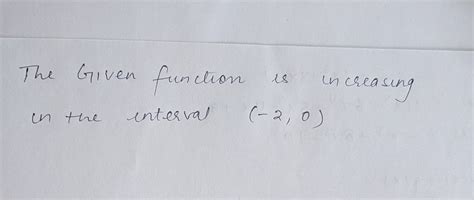 The Given function is increasing
in the interval (-2, 0)